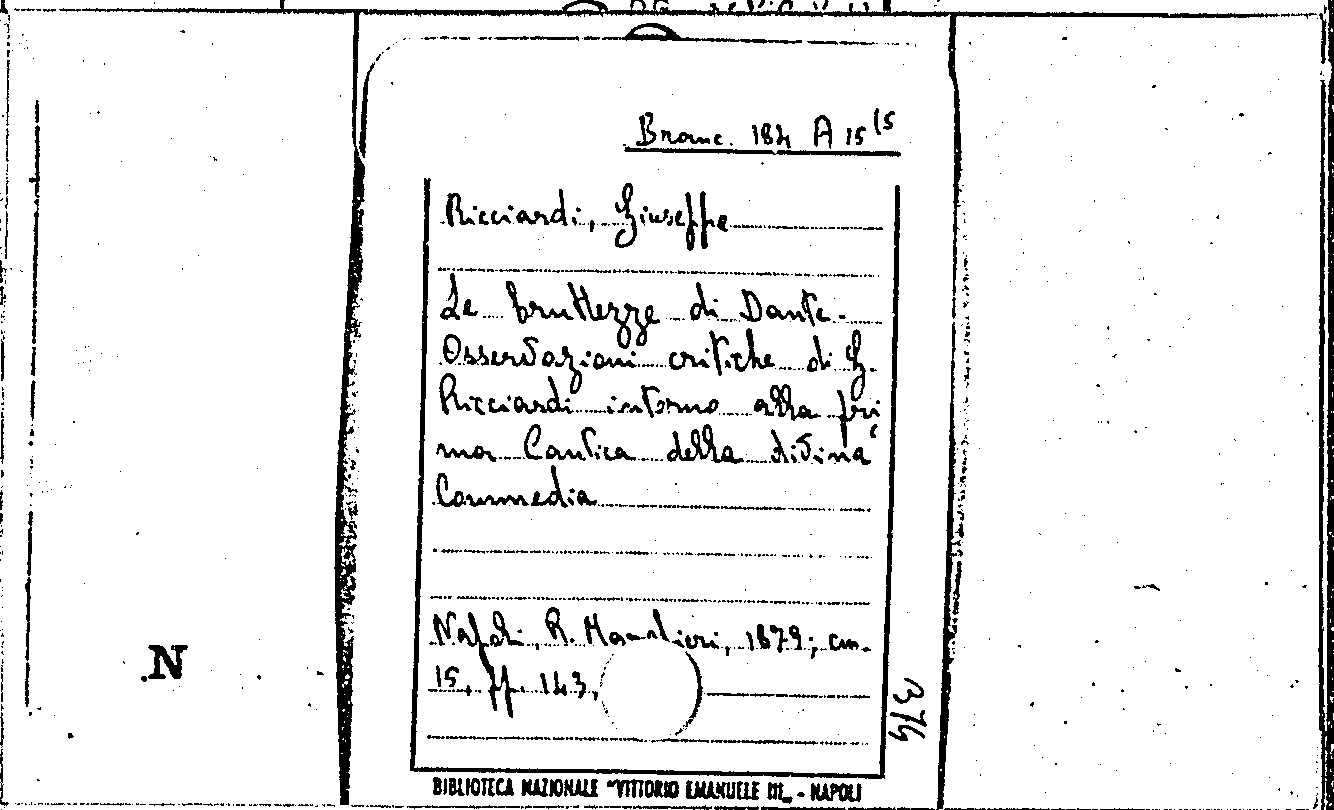 Branc. 184 A 15 (5
Ricciardi, Giuseppe
Le bruttezze di Dante.
Osservazioni critiche di G.
Ricciardi intorno alla pri
ma Cantica della divina
Commedia
Napoli, R. 1879; cm.
15, pp. 143,
374
N
BIBLIOTECA NAZIONALE "VITTORIO EMANUELE III„ - NAPOLI